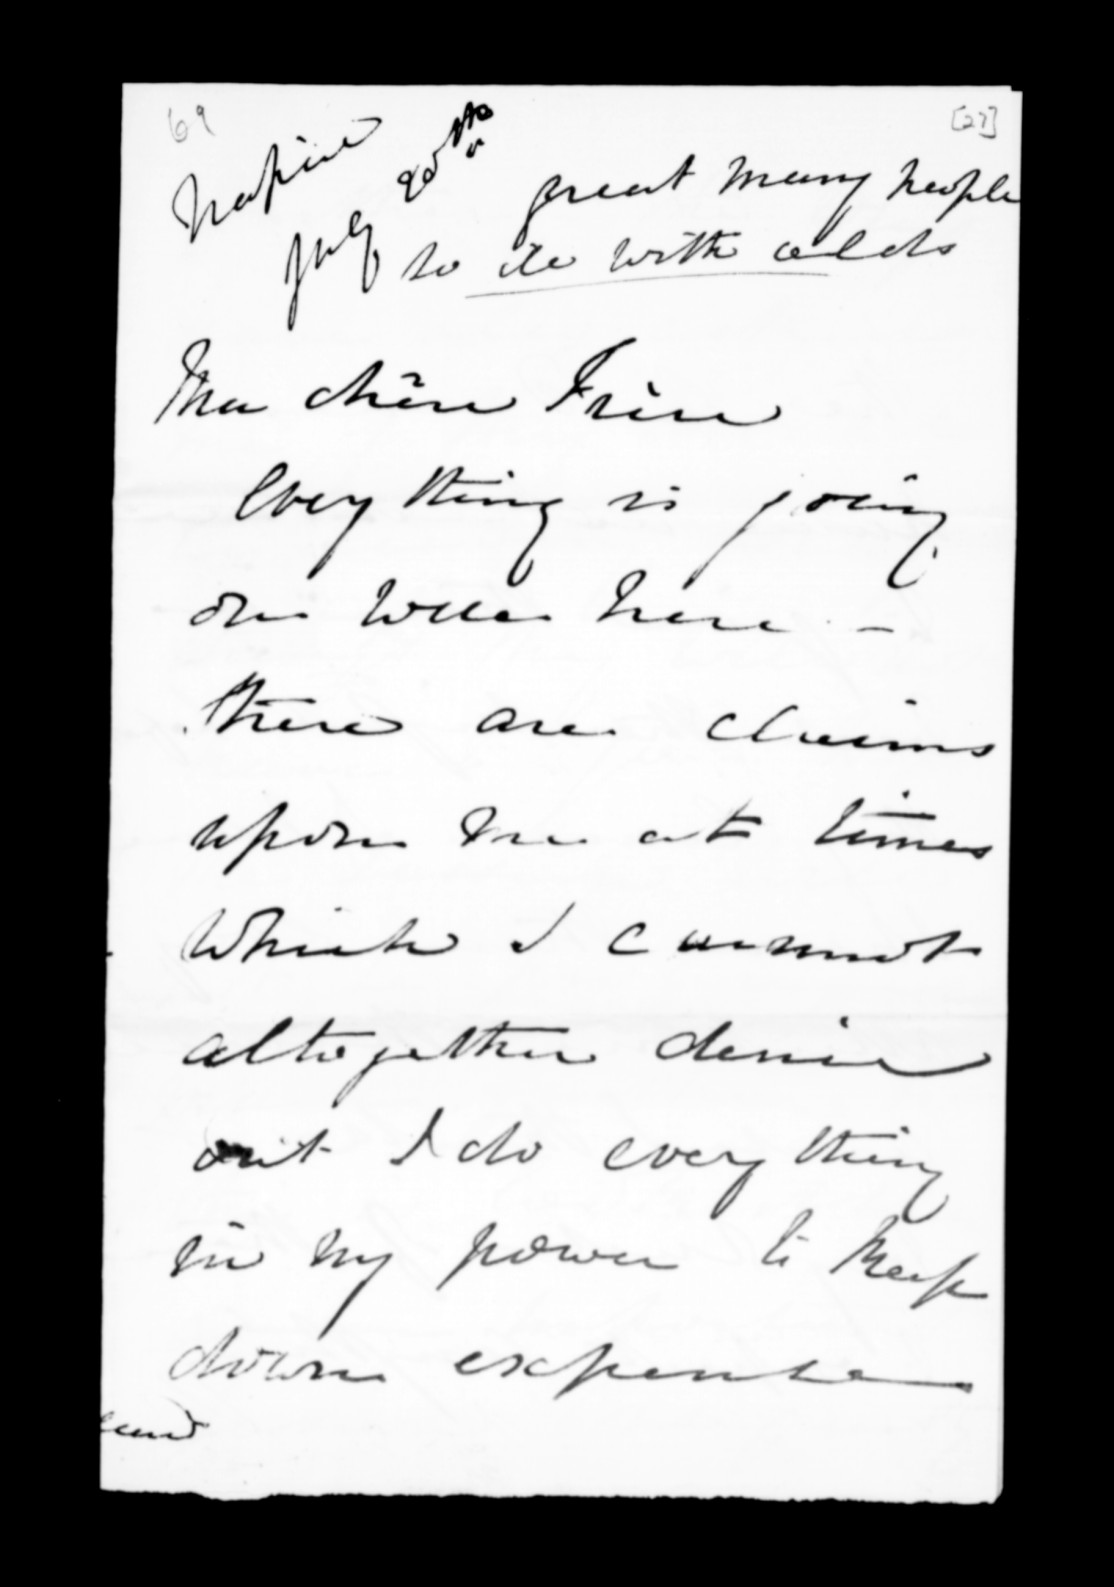 69
[27]
Napier
July 20th
great many people
to die with colds
Ma chère Frère
Every thing is going
on well here -
there are claims
upon me at times
which I cannot
altogether denie
I do every thing
in my power to keep
down expense